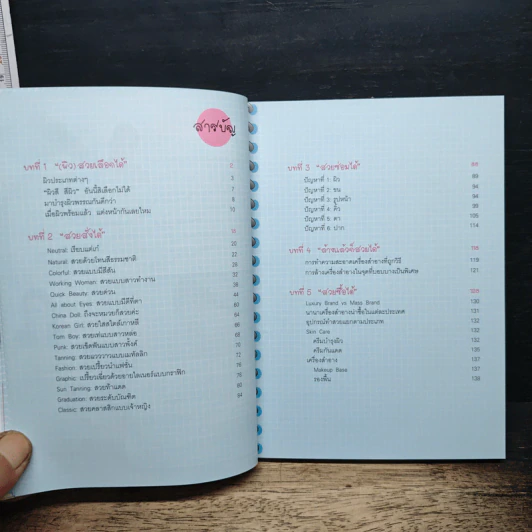 สารบัญ
บทที่ 1 "(ผิว) สวยเลือกได้" 2
ผิวประเภทต่างๆ 3
"ผิวสี สีผิว" อันนี้สิเลือกไม่ได้ 7
มาบำรุงผิวพรรณกันดีกว่า 8
เมื่อผิวพร้อมแล้ว แต่งหน้ากันเลยไหม 10
บทที่ 2 "สวยสั่งได้"
Neutral: เรียบแต่เก๋ 20
Natural: สวยด้วยโทนสีธรรมชาติ 22
Colorful: สวยแบบมีสีสัน
Working Woman: สวยแบบสาวทำงาน
Quick Beauty: สวยด่วน
All about Eyes: สวยแบบมีดีที่ตา 44
China Doll: ถึงจะหมวยก็สวยค่ะ 60
Korean Girl: สวยใสสไตล์เกาหลี
Tom Boy: สวยเท่แบบสาวหล่อ
Punk: สวยเข็ดฟันแบบสาวพั้งค์ 68
Tanning: สวยแวววาวแบบเมทัลลิก 72
Fashion: สวยเปรี้ยวนำแฟชั่น 76
Graphic: เปรี้ยวเฉี่ยวด้วยอายไลเนอร์แบบกราฟิก 76
Sun Tanning: สวยท้าแดด
Graduation: สวยระดับบัณฑิต
Classic: สวยคลาสสิกแบบเจ้าหญิง 84
บทที่ 3 "สวยซ่อมได้"
ปัญหาที่ 1: ผิว 89
ปัญหาที่ 2: ขน 94
ปัญหาที่ 3: รูปหน้า 94
ปัญหาที่ 4: คิ้ว 98
ปัญหาที่ 5: ตา
ปัญหาที่ 6: ปาก 114
บทที่ 4 "ล้างแล้วก็สวยได้"
การทำความสะอาดเครื่องสำอางที่ถูกวิธี 118
การล้างเครื่องสำอางในจุดที่บอบบางเป็นพิเศษ 121
บทที่ 5 "สวยซื้อได้"
Luxury Brand vs Mass Brand 130
นานาเครื่องสำอางน่าซื้อในแต่ละประเทศ 131
อุปกรณ์ทำสวยแยกตามประเภท 132
Skin Care 132
ครีมบำรุงผิว 132
ครีมกันแดด 135
เครื่องสำอาง 137
Makeup Base 137
รองพื้น 138